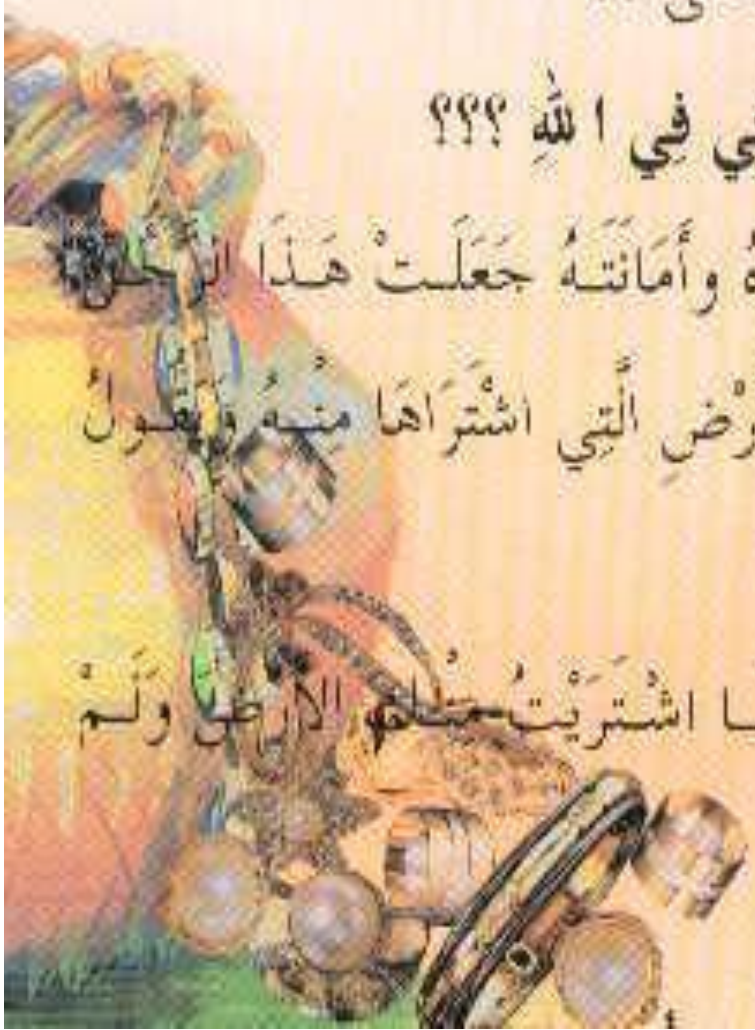 فِي اللهِ ؟؟؟
وأَمَانَتَهُ جَعَلَتْ هَذَا الرَّجُلَ
الَّتِي اشْتَرَاهَا مِنْهُ وَيَقُولُ
اشْتَرَيْتُ مِنْكَ الأَرْضَ وَلَمْ